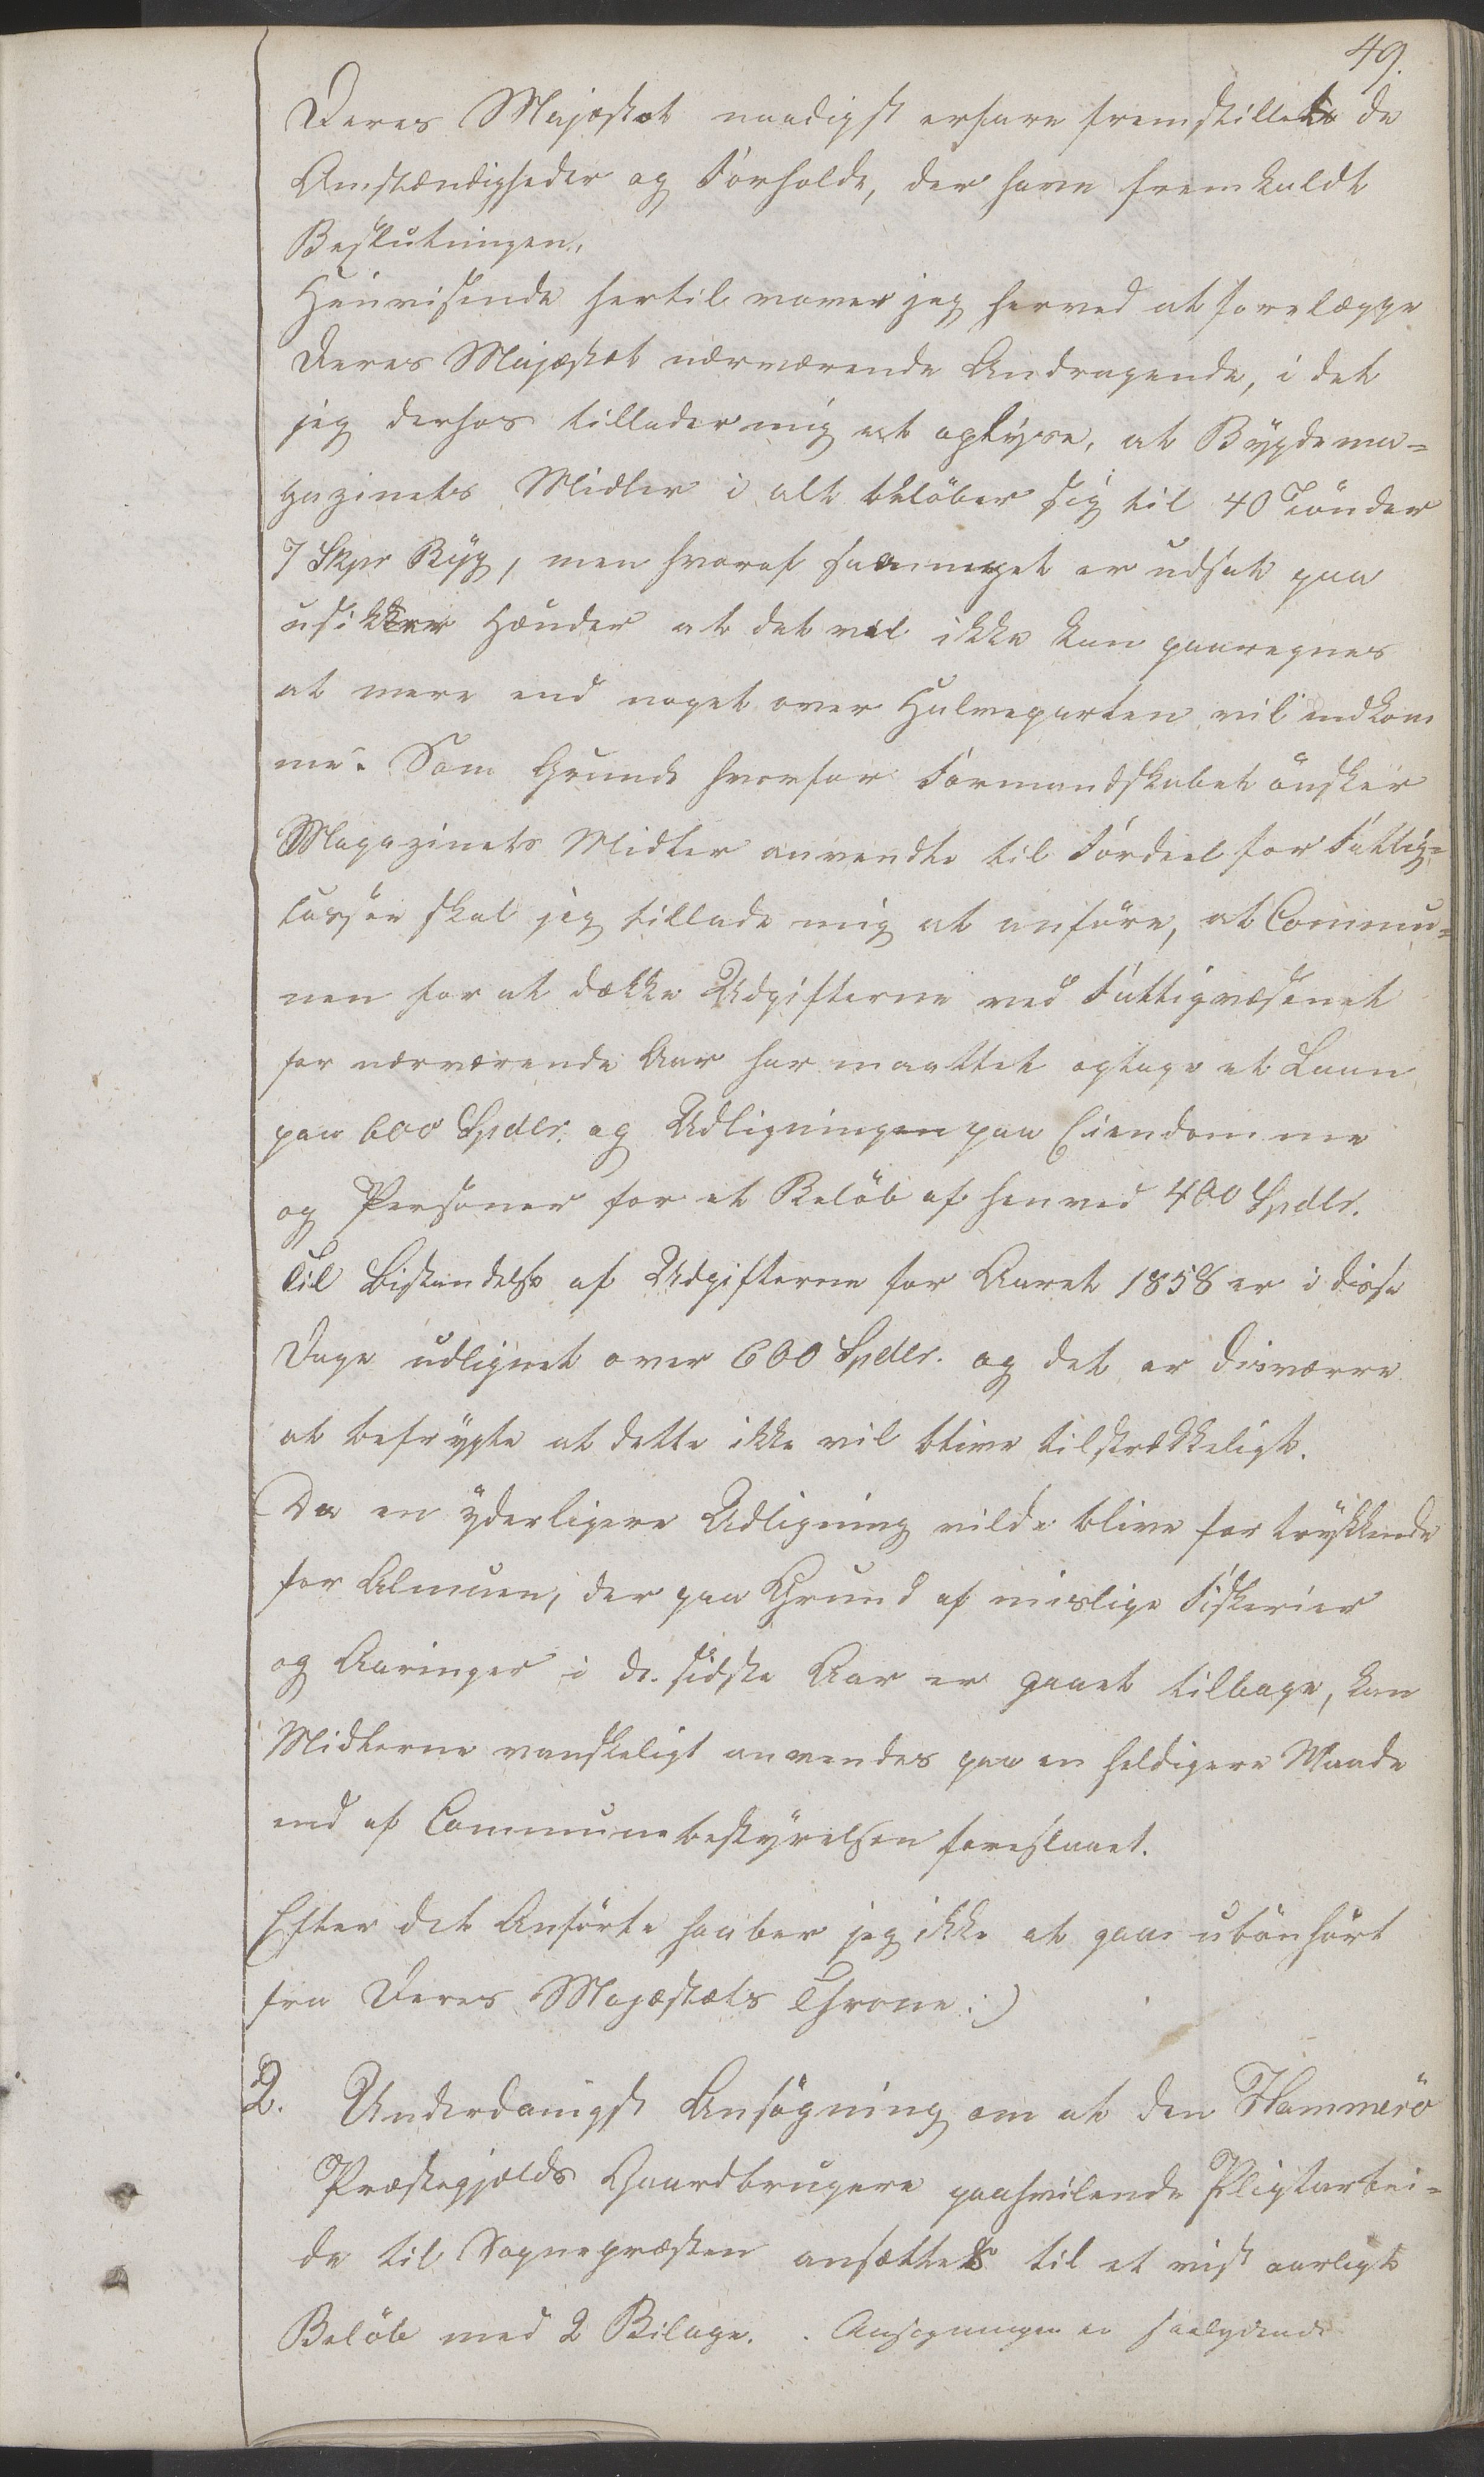 49.
Deres Majestæt naadigst erfare fremstillet de
Omstændigheder og Forholde, der have fremkaldt
Beslutningen.
Henvisende hertil vover jeg herved at forelægge
Deres Majestæt nærværende Andragende, i det
jeg derhos tillader mig at oplyse, at Bygdema-
gazinets Midler i alt beløber sig til 40 Tønder
7 Skpr Byg, men hvoraf saameget er udsat paa
usikkre Hænder at det vel ikke kan paaregnes
at mere end noget over Halveparten vil indkom
me. Som Grund hvorfor Formandskabet ønsker
Magazinets Midler anvendte til Fordeel for Fattig-
cassen skal jeg tillade mig at anføre, at Commu-
nen for at dække Udgifterne ved Fattigvæsenet
for nærværende Aar har maattet optage et Laan
paa 600 Spdlr. og Udligningen paa Eiendomme
og Personer for et Beløb af henved 400 Spdlr.
Til Bestridelse af Udgifterne for Aaret 1858 er i disse
Dage udlignet over 600 Spdlr. og det er desværre
at befrygte at dette ikke vil blive tilstrækkeligt.
Da en yderligere Udligning vilde blive for trykkende
for Almuen, der paa Grund af mislige Fiskerier
og Aaringer i de sidste Aar er gaaet tilbage, kan
Midlerne vanskeligt anvendes paa en heldigere Maade
end af Communebestyrelsen foreslaaet.
Efter det Anførte haaber jeg ikke at gaae ubønhørt
fra Deres Majestæts Throne :)
2. Underdanigst Ansøgning om at den Hammerø
Præstegjelds Gaardbrugere paahvilende Pligtarbei-
de til Sognepræsten ansættes til et vist aarligt
Beløb med 2 Bilage. . Ansøgningen er saalydende